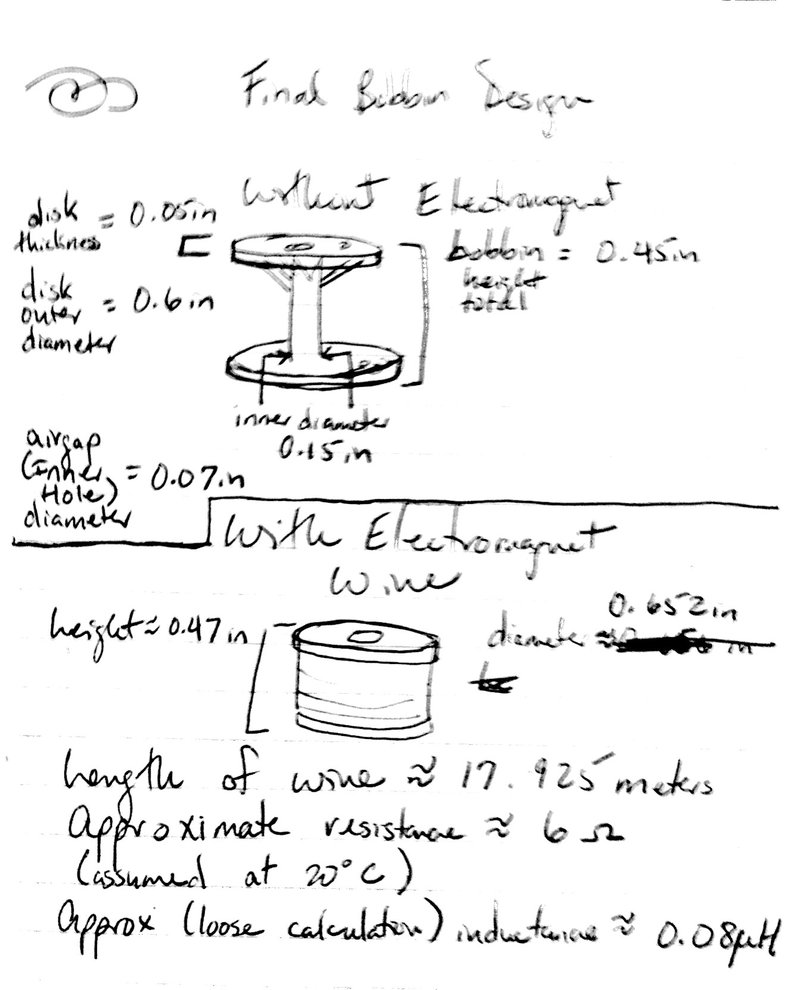 Final Bobbin Design
Without Electromagnet
disk thickness = 0.05in
disk outer diameter = 0.6in
bobbin height total = 0.45in
inner diameter
0.15in
airgap (Inner Hole) diameter = 0.07in
With Electromagnet
Wire
height ≈ 0.47in
0.652in
diameter ≈
Length of wire ≈ 17.925 meters
Approximate resistance ≈ 6 Ω
(assumed at 20°C)
Approx (loose calculation) inductance ≈ 0.08μH